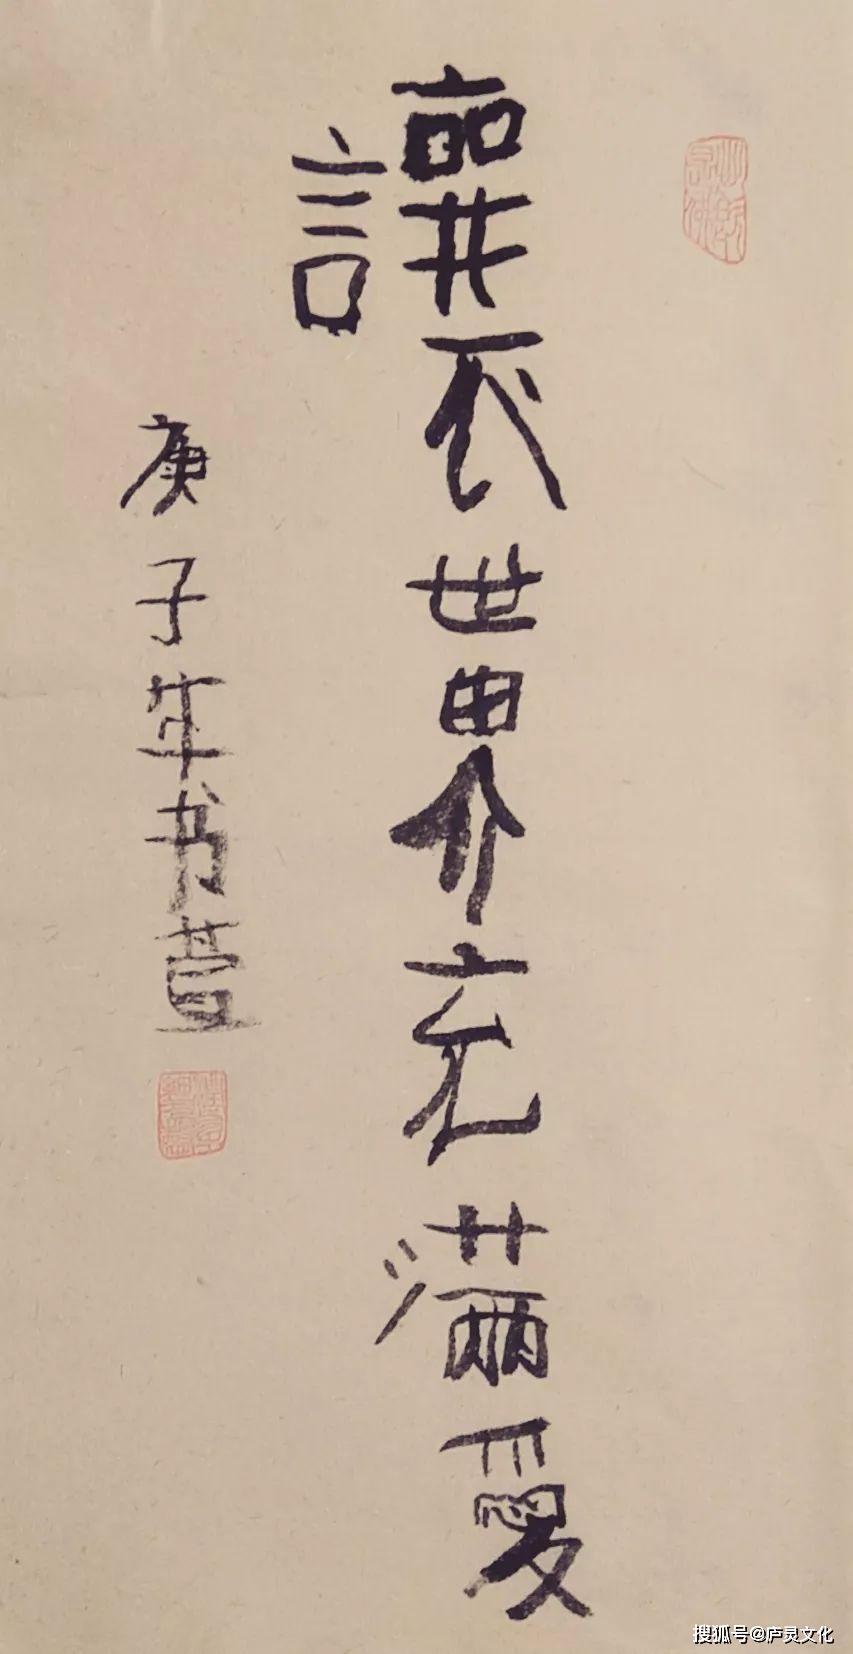 讓世界充滿愛
庚子年书萱
搜狐号@庐灵文化